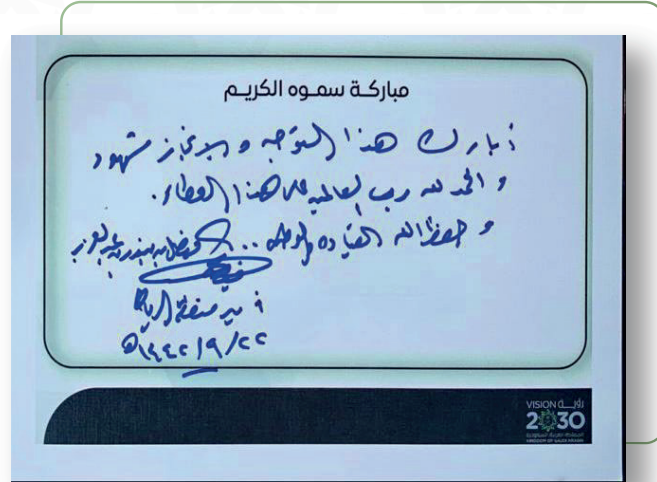 مباركة سمـوه الكريـم
أبارك هذا التوجه والإنجاز مشهود
و الحمد لله رب العالمين على هذا العطاء.
و حفظ الله القيادة والوطن .. فيصل بن بندر بن عبدالعزيز
أمير منطقة الرياض
١٤٤٢/٩/٢٢هـ
VISION رؤيــة
2030
المملكة العربية السعودية
KINGDOM OF SAUDI ARABIA